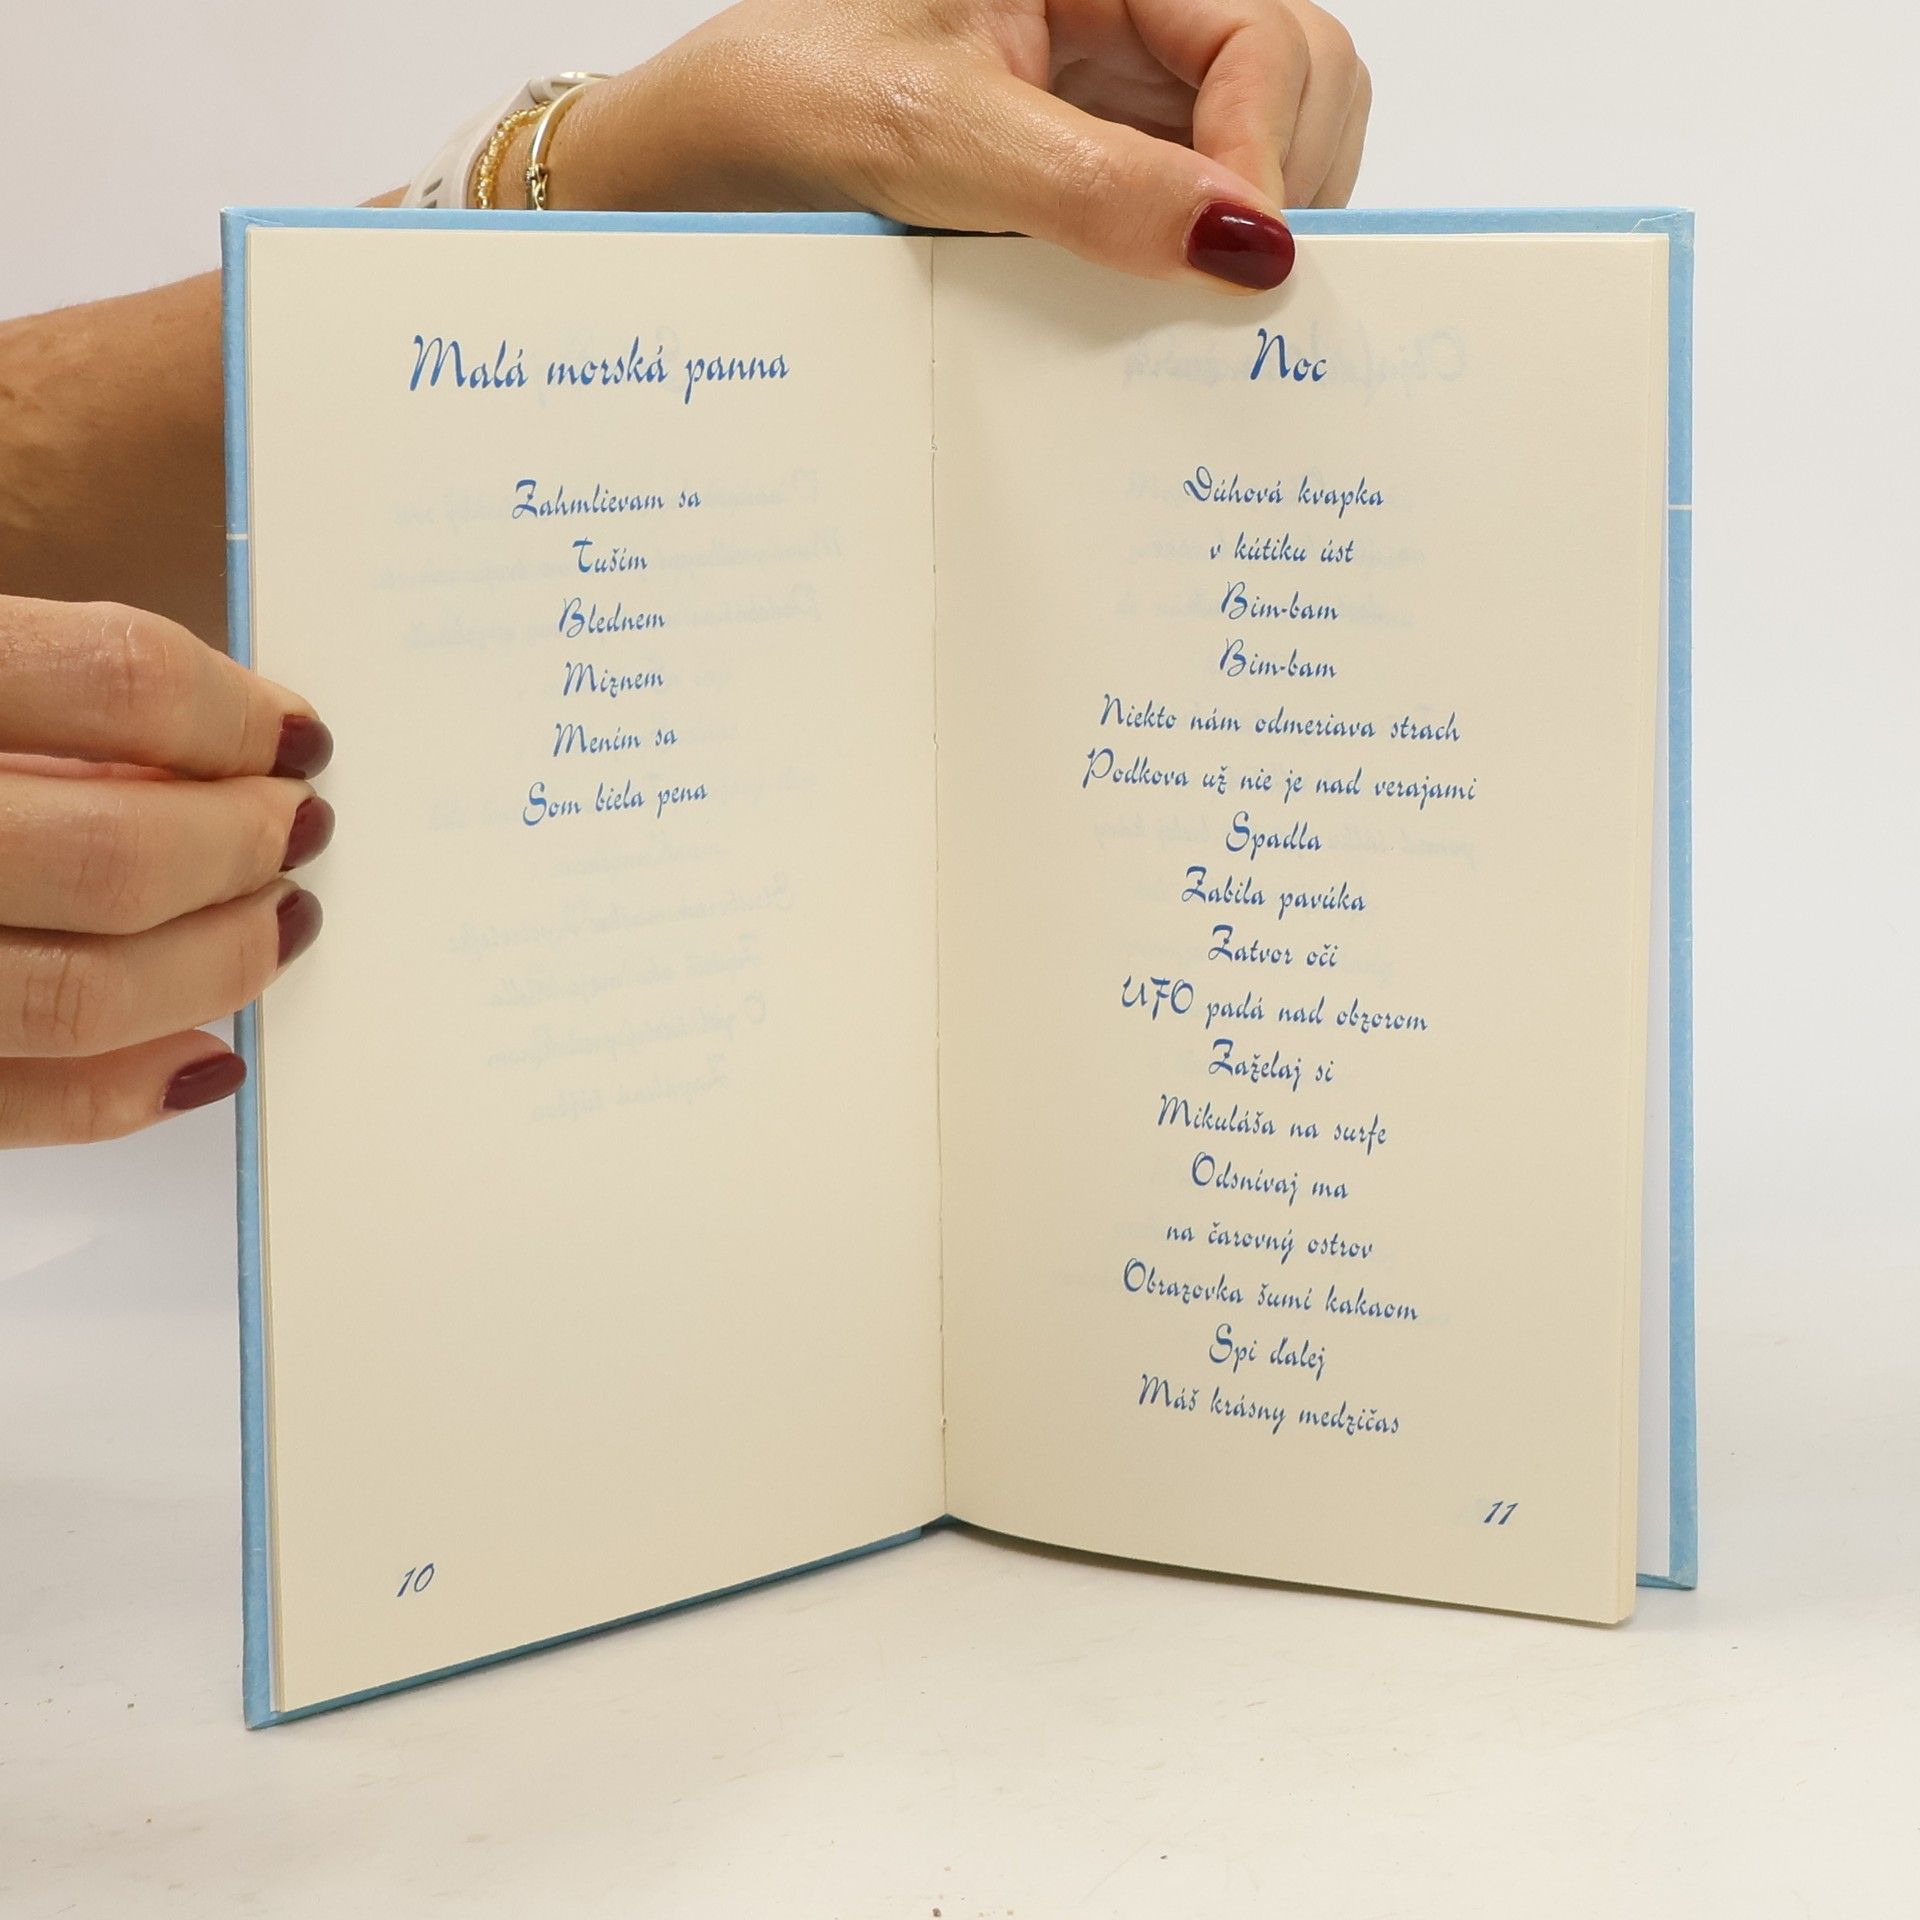 Malá morská panna
Zahmlievam sa
Tuším
Blednem
Miznem
Mením sa
Som biela pena
10
Noc
Dúhová kvapka
v kútiku úst
Bim-bam
Bim-bam
Niekto nám odmeriava strach
Podkova už nie je nad verajami
Spadla
Zabila pavúka
Zatvor oči
UFO padá nad obzorom
Zaželaj si
Mikuláša na surfe
Odsnívaj ma
na čarovný ostrov
Obrazovka šumí kakaom
Spi ďalej
Máš krásny medzičas
11